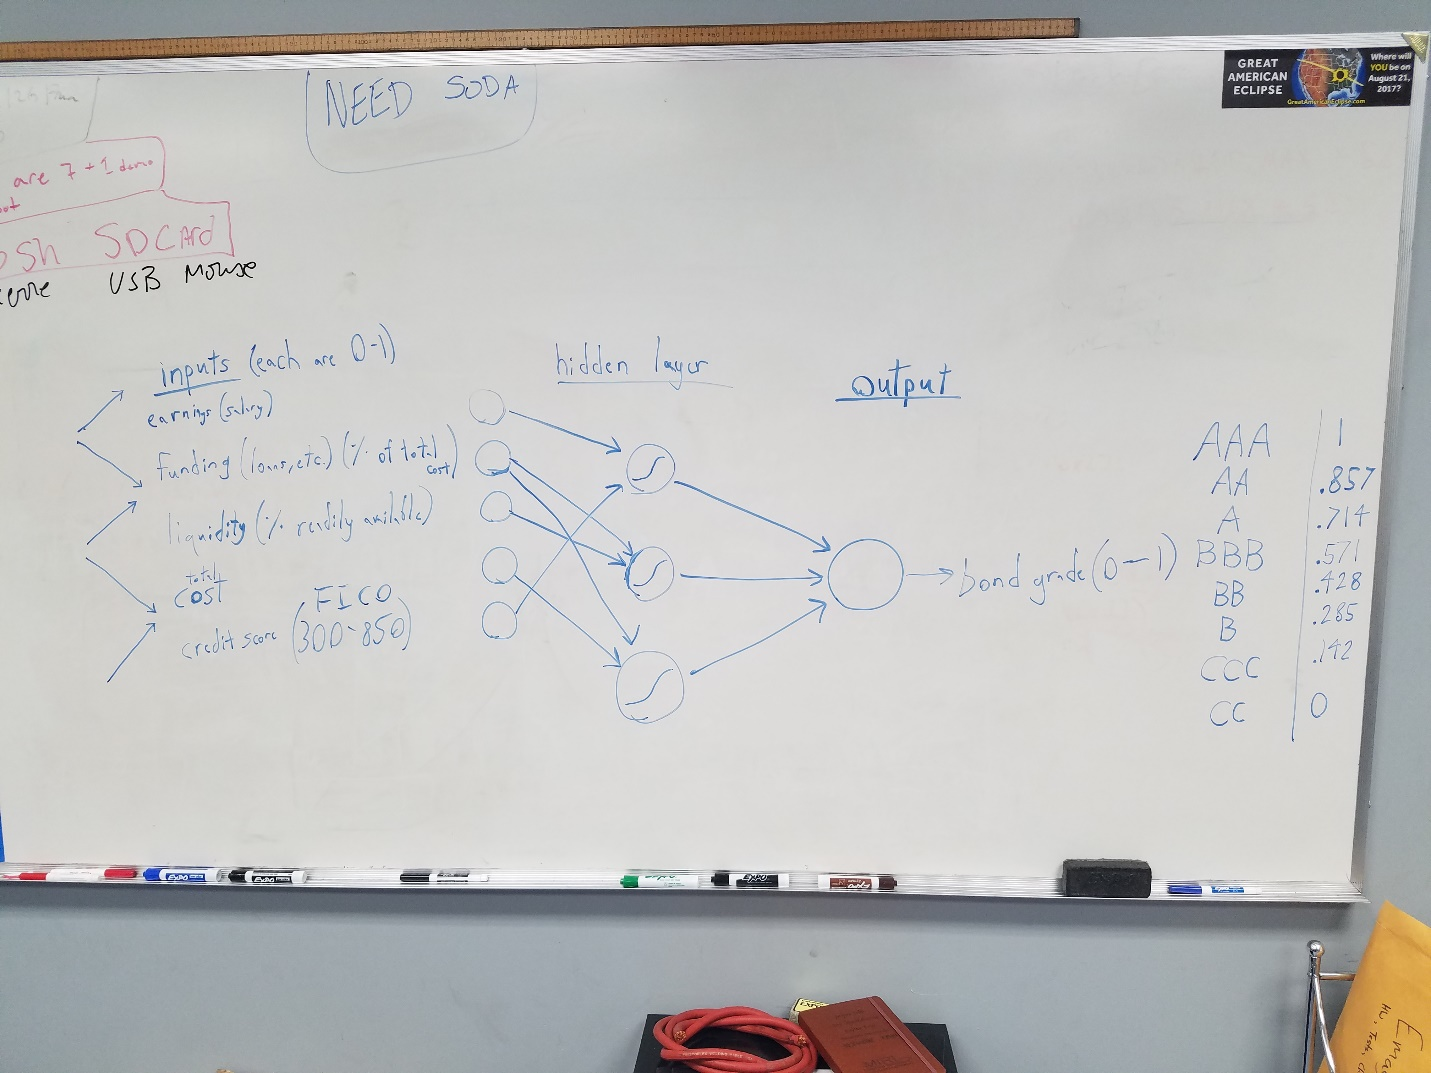 NEED SODA
GREAT
AMERICAN
ECLIPSE
Where will
YOU be on
August 21,
2017?
GreatAmericanEclipse.com
are 7 + 1 demo
SDCArd
USB Mouse
inputs (each are 0-1)
earnings (salary)
funding (loans, etc.) (% of total
cost)
liquidity (% readily available)
total
cost
FICO
credit score (300-850)
hidden layer
output
bond grade (0-1)
AAA 1
AA .857
A .714
BBB .571
BB .428
B .285
CCC .142
CC 0
EXPO
EXPO
EXPO